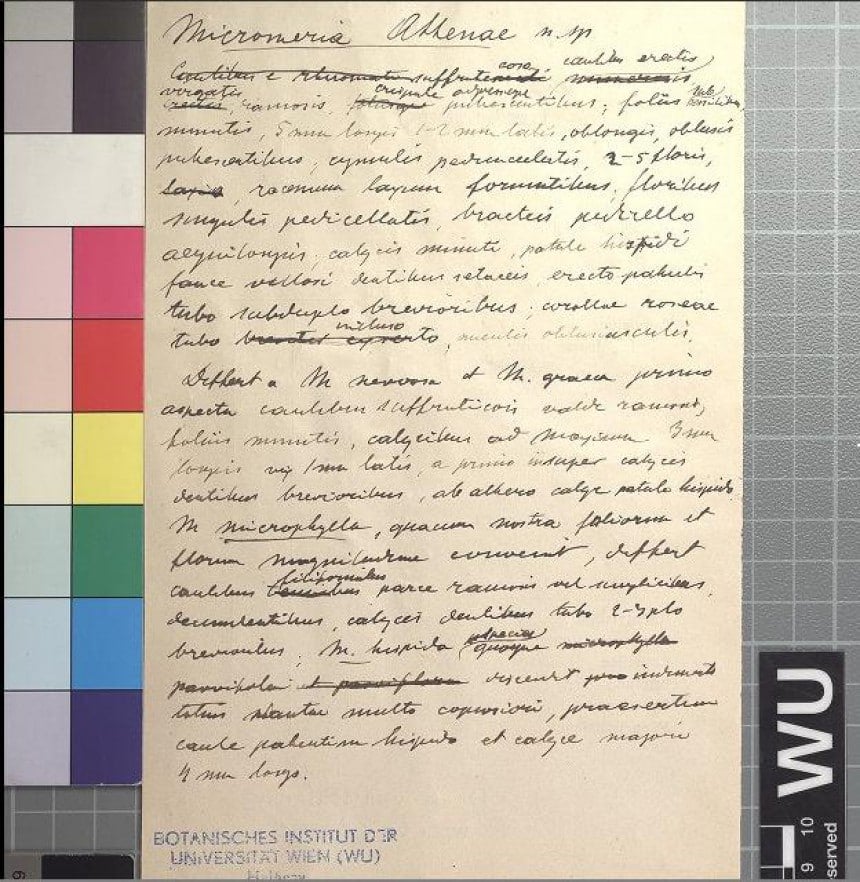 Micromeria Athenae n. sp
Caulibus e rhizomate suffruticosa caulibus erectis
virgatis
erectis, ramosis, crispule adpresse pubescentibus; foliis sub sessilibus,
minutis, 5 mm longis 1-2 mm latis, oblongis, obtusis
pubescentibus; cymulis pedunculatis, 2-5 floris,
laxis, racemum laxum formantibus; floribus
singulis pedicellatis, bracteis pedicello
aequilongis; calycis minuti, patule hispidi
fauce villosi dentibus setaceis, erecto-patulis
tubo subduplo brevioribus; corollae roseae
incluso
tubo breviter exserto,
Differt a M nervosa et M. graeca primo
aspectu caulibus suffruticosis valde ramosis,
foliis minutis, calycibus ad maximum 3 mm
longis vix 1 mm latis, a primo insuper calycis
dentibus brevioribus, ab altero calyce patule hispido.
M microphylla, quacum nostra foliorum et
florum magnitudine convenit, differt
filiformibus
caulibus tenuibus parce ramosis vel simplicibus,
decumbentibus, calycis dentibus tubo 2-3plo
brevioribus; M. hispida species quoque microphylla
parvifolia et parviflora discedit indumento
totius plantae multo copiosiori, praesertim
caule patentim hispido et calyce majori
4 mm longo.
BOTANISCHES INSTITUT DER
UNIVERSITÄT WIEN (WU)
WU
9 10
served
9